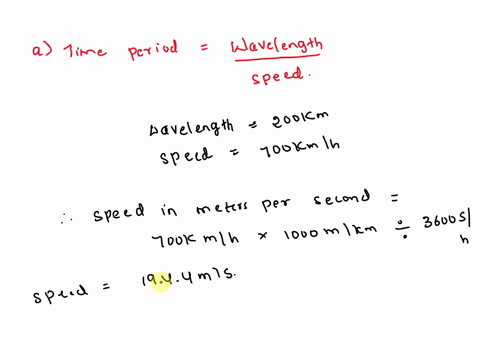 a) Time period = Wavelength
speed.
Wavelength = 200km
speed = 700km/h
∴ speed in meters per second =
700km/h × 1000m/km ÷ 3600s/
h
speed = 19.4.4m/s.